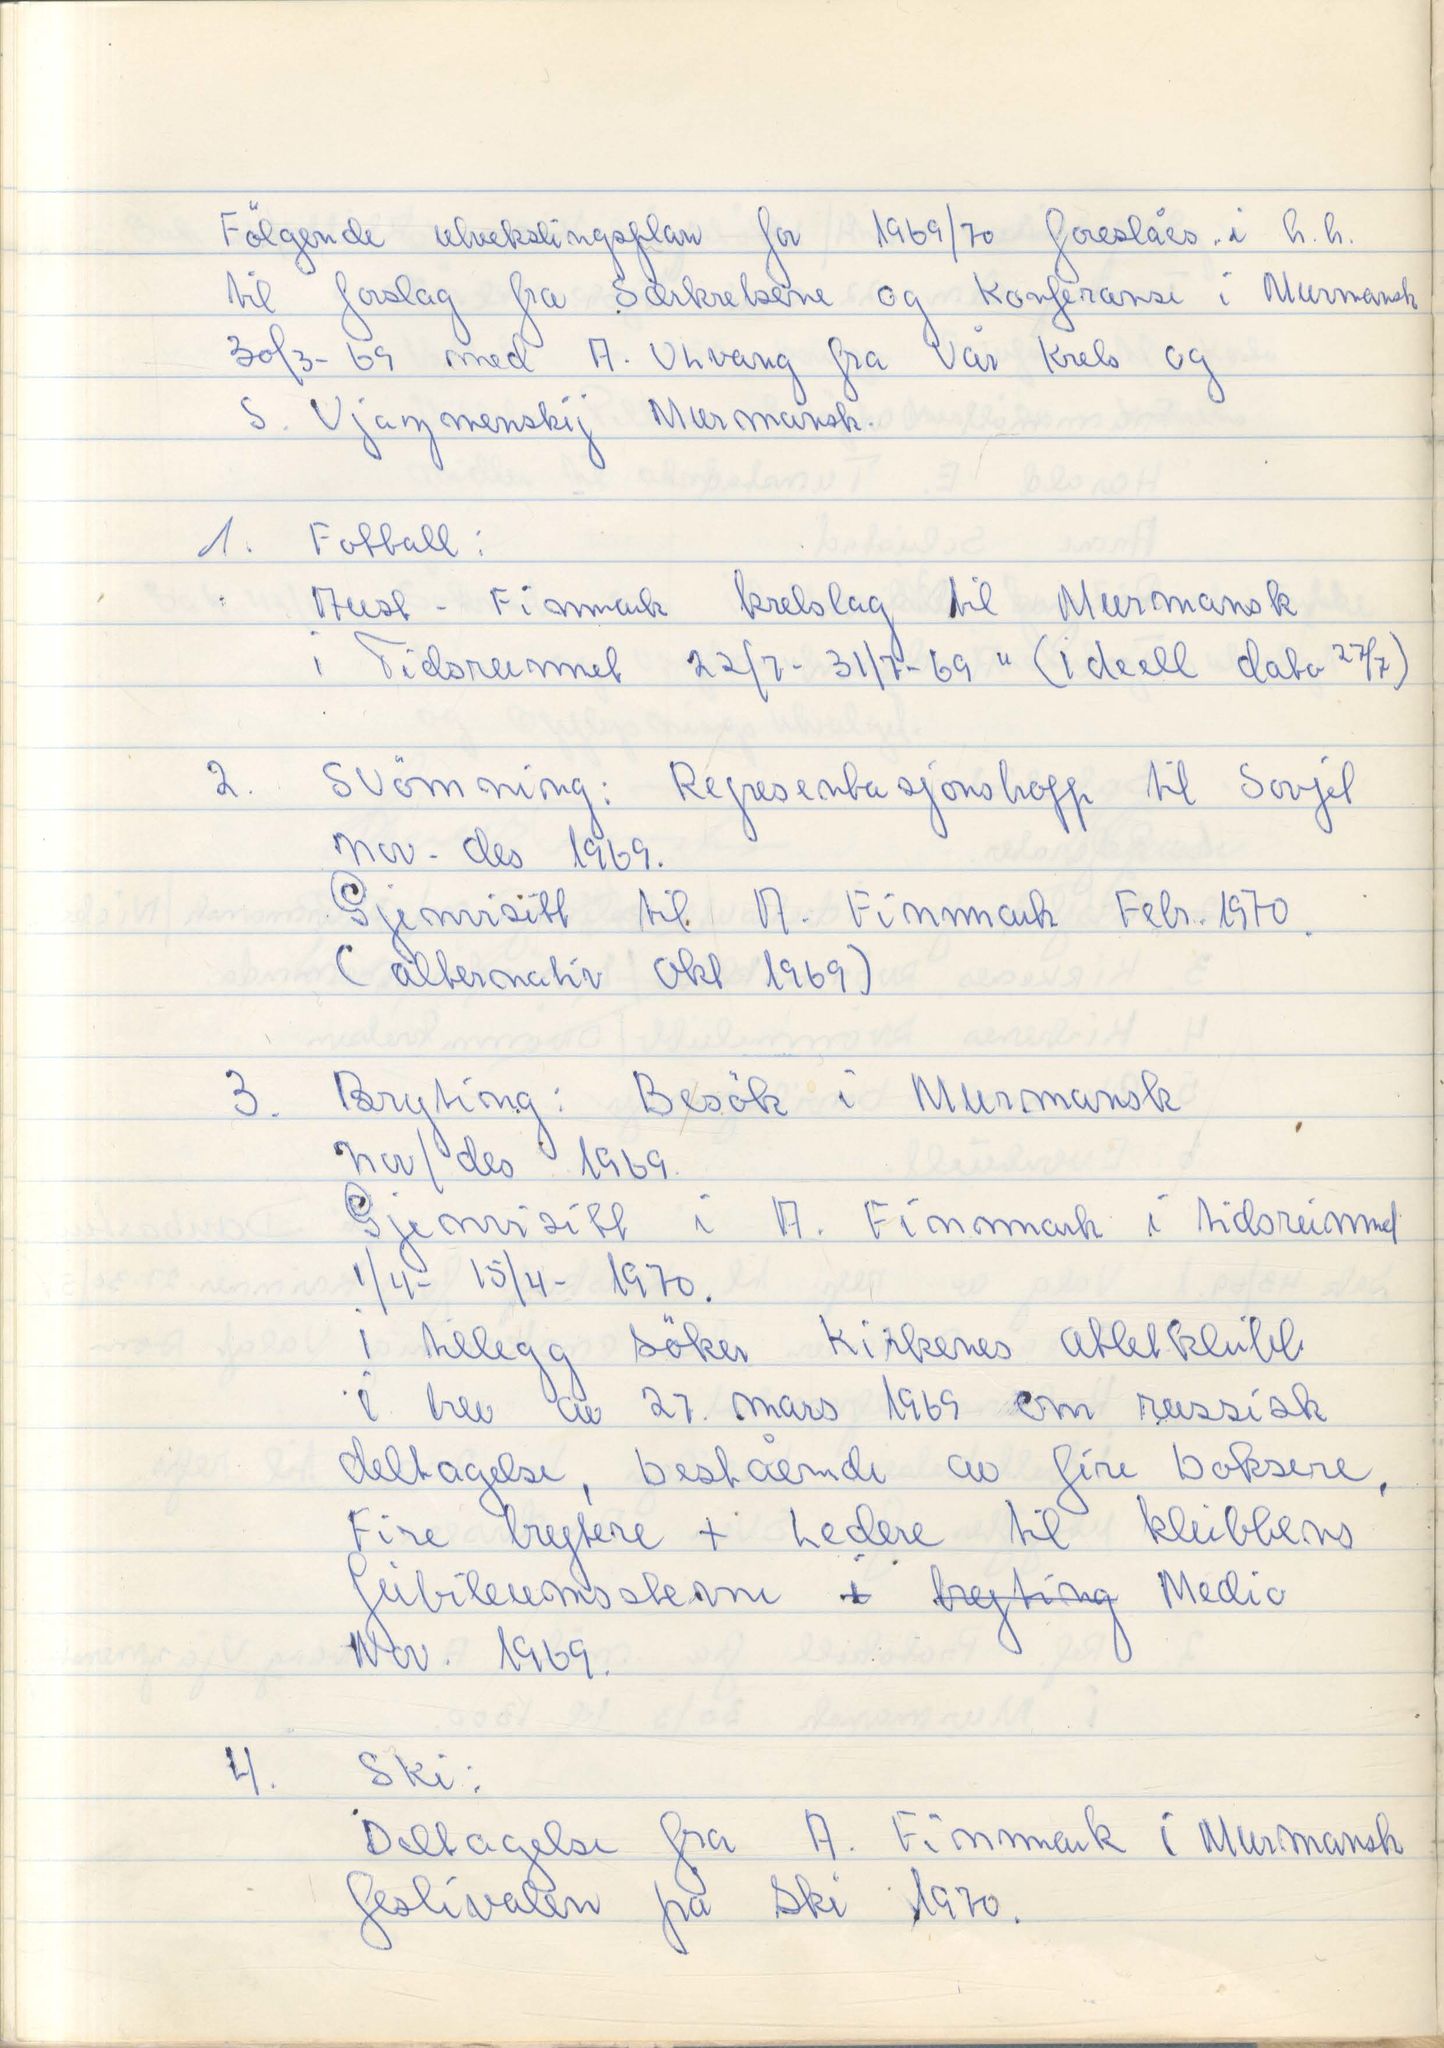 Fölgende utvekslingsplan for 1969/70 foreslåes i h.h.
til forslag fra Særkretsene og Konferanse i Murmansk
30/3-69 med A. Utvang fra Vår Krets og
S. Vjazmenskij Murmansk.
1. Fotball:
Aust-Finmark kretslag til Murmansk
i Tidsrummet 22/7-31/7-69 " (ideell dato 27/7)
2. Svömming: Representasjonstropp til Sovjet
nov-des 1969.
Gjenvisitt til A. Finnmark Febr. 1970.
(alternativ Okt 1969)
3. Bryting: Besök i Murmansk
nov/des 1969.
Gjenvisitt i A. Finnmark i tidsrummet
1/4- 15/4- 1970.
i tillegg söker Kirkenes atletklubb
i brev av 27. mars 1969 om russisk
deltagelse, bestående av fire boksere,
Fire brytere + Ledere til klubbens
Jubileumsstevne i bryting Medio
Nov. 1969.
4. Ski:
Deltagelse fra A. Finnmark i Murmansk
festivalen på Ski 1970.